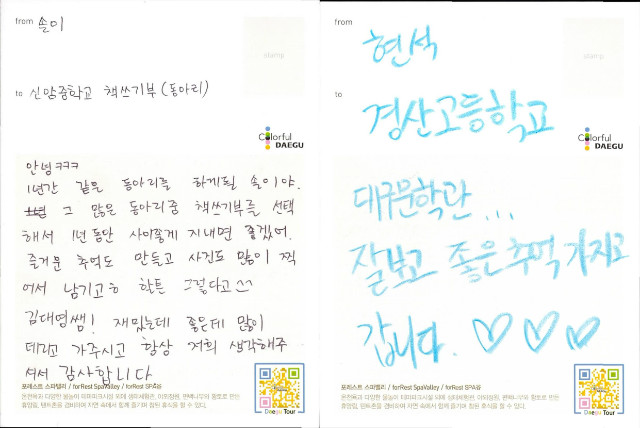 from 솔이
stamp
to 신암중학교 책쓰기부 (동아리)
Colorful
DAEGU
안녕ㅋㅋㅋ
1년간 같은 동아리를 하게될 솔이야.
그 많은 동아리중 책쓰기부를 선택
해서 1년동안 사이좋게 지내면 좋겠어.
즐거운 추억도 만들고 사진도 많이 찍
어서 남기고ㅎ 할튼 그렇다고^^
김대영쌤! 재밌는데 좋은데 많이
데리고 가주시고 항상 저희 생각해주
셔서 감사합니다
포레스트 스파밸리 / forRest SpaValley / forRest SPA谷
Daegu Tour
from 현석
stamp
to 경산고등학교
Colorful
DAEGU
대구문학관...
잘보고 좋은추억 가지고
갑니다. ♡♡♡
포레스트 스파밸리 / forRest SpaValley / forRest SPA谷
Daegu Tour